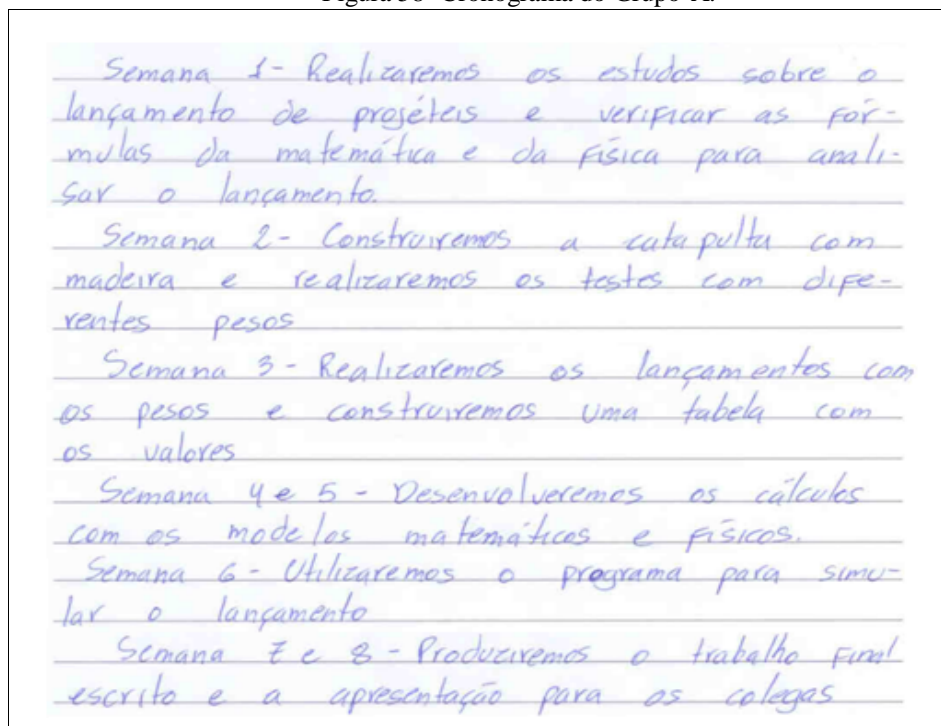 Semana 1- Realizaremos os estudos sobre o
lançamento de projéteis e verificar as fór-
mulas da matemática e da física para anali-
sar o lançamento.
Semana 2- Construiremos a catapulta com
madeira e realizaremos os testes com dife-
rentes pesos
Semana 3- Realizaremos os lançamentos com
os pesos e construiremos uma tabela com
os valores
Semana 4 e 5 - Desenvolveremos os cálculos
com os modelos matemáticos e físicos.
Semana 6- Utilizaremos o programa para simu-
lar o lançamento
Semana 7 e 8 - Produziremos o trabalho final
escrito e a apresentação para os colegas